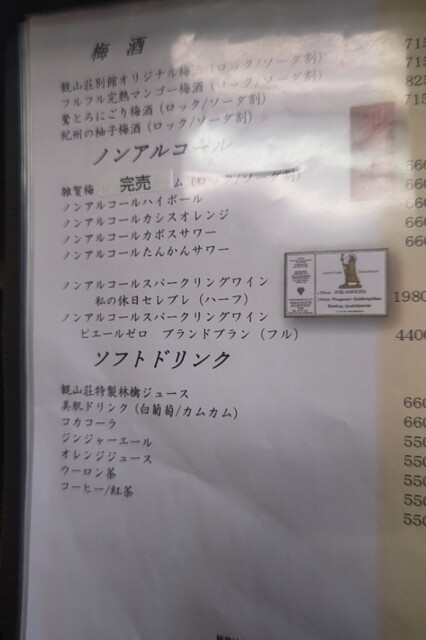 梅酒
観山荘別館オリジナル梅酒(ロック/ソーダ割) 715
フルフル完熟マンゴー梅酒(ロック/ソーダ割) 715
鶯とろにごり梅酒(ロック/ソーダ割) 825
紀州の柚子梅酒(ロック/ソーダ割) 715
ノンアルコール
雑賀梅 完売 ム(ロック/ソーダ割) 660
ノンアルコールハイボール 660
ノンアルコールカシスオレンジ 660
ノンアルコールカボスサワー 660
ノンアルコールたんかんサワー
ノンアルコールスパークリングワイン
私の休日セレブレ(ハーフ) 1980
ノンアルコールスパークリングワイン
ピエールゼロ ブランドブラン(フル) 4400
ソフトドリンク
観山荘特製林檎ジュース 660
美肌ドリンク(白葡萄/カムカム) 660
コカコーラ 550
ジンジャーエール 550
オレンジジュース 550
ウーロン茶 550
コーヒー/紅茶 550